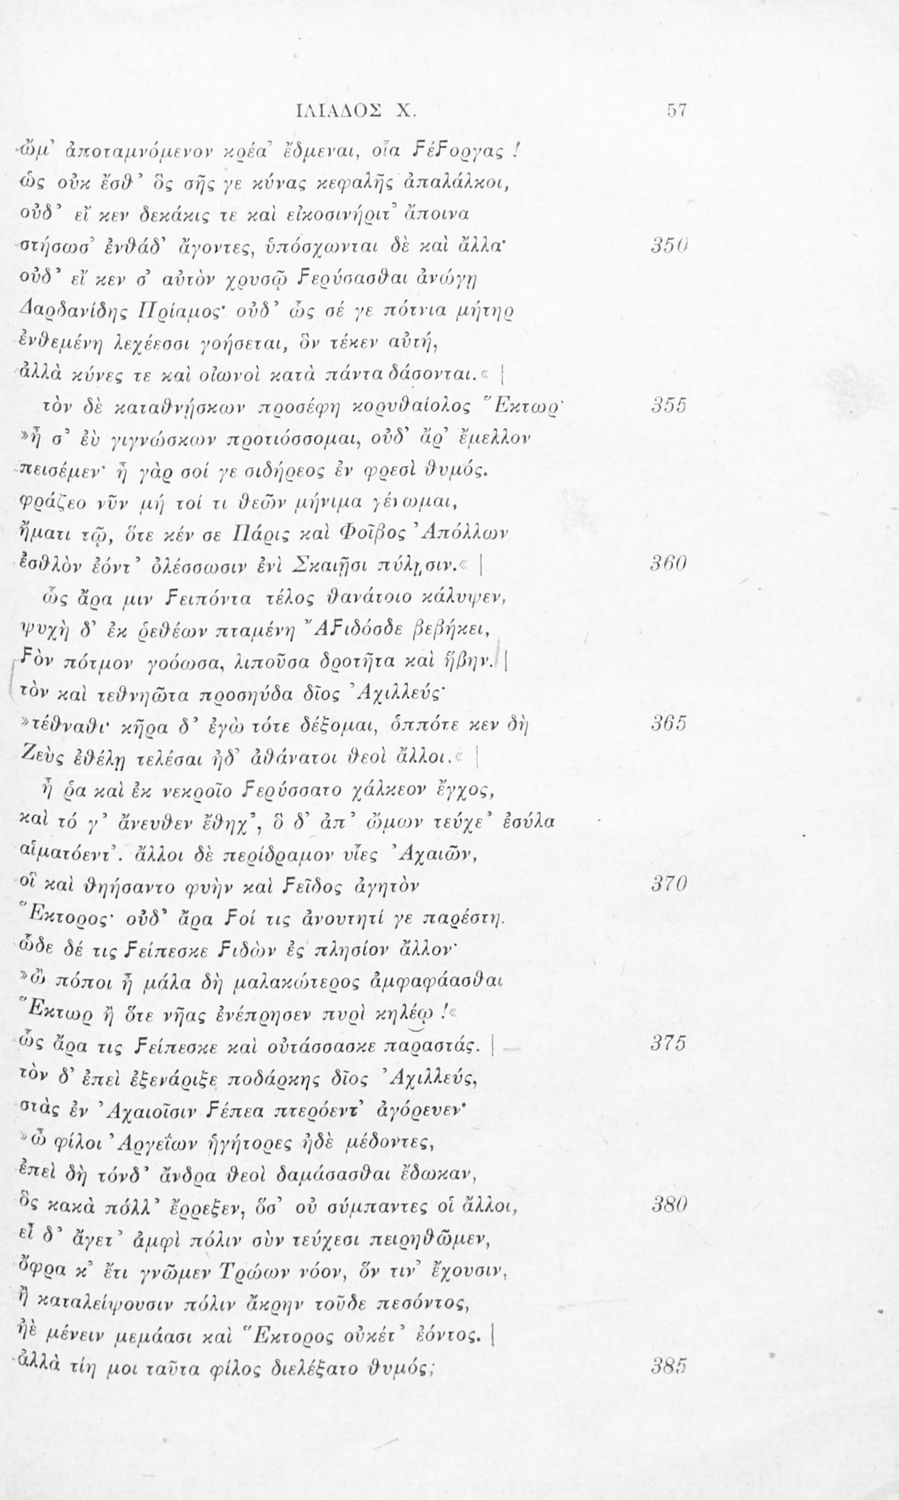 ΙΛΙΑΔΟΣ Χ. 57
ὤμ’ ἀποταμνόμενον κρέα’ ἔδμεναι, οἷα ϝέϝοργας !
ὡς οὐκ ἔσθ’ ὃς σῆς γε κύνας κεφαλῆς ἀπαλάλκοι,
οὐδ’ εἴ κεν δεκάκις τε καὶ εἰκοσινήριτ’ ἄποινα
στήσωσ’ ἐνθάδ’ ἄγοντες, ὑπόσχωνται δὲ καὶ ἄλλα· 350
οὐδ’ εἴ κεν σ’ αὐτὸν χρυσῷ ϝερύσασθαι ἀνώγῃ
Δαρδανίδης Πρίαμος· οὐδ’ ὧς σέ γε πότνια μήτηρ
ἐνθεμένη λεχέεσσι γοήσεται, ὃν τέκεν αὐτή,
ἀλλὰ κύνες τε καὶ οἰωνοὶ κατὰ πάντα δάσονται.« |
τὸν δὲ καταθνῄσκων προσέφη κορυθαίολος Ἕκτωρ· 355
»ἦ σ’ ἐὺ γιγνώσκων προτιόσσομαι, οὐδ’ ἄρ’ ἔμελλον
πεισέμεν· ἦ γὰρ σοί γε σιδήρεος ἐν φρεσὶ θυμός.
φράζεο νῦν μή τοί τι θεῶν μήνιμα γένωμαι,
ἤματι τῷ, ὅτε κέν σε Πάρις καὶ Φοῖβος Ἀπόλλων
ἐσθλὸν ἐόντ’ ὀλέσσωσιν ἐνὶ Σκαιῇσι πύλῃσιν.« | 360
ὣς ἄρα μιν ϝειπόντα τέλος θανάτοιο κάλυψεν,
ψυχὴ δ’ ἐκ ῥεθέων πταμένη Ἄϝιδόσδε βεβήκει,
ϝὸν πότμον γοόωσα, λιποῦσα δροτῆτα καὶ ἥβην. |
τὸν καὶ τεθνηῶτα προσηύδα δῖος Ἀχιλλεύς·
»τέθναθι· κῆρα δ’ ἐγὼ τότε δέξομαι, ὁππότε κεν δὴ 365
Ζεὺς ἐθέλῃ τελέσαι ἠδ’ ἀθάνατοι θεοὶ ἄλλοι.« |
ἦ ῥα καὶ ἐκ νεκροῖο ϝερύσσατο χάλκεον ἔγχος,
καὶ τό γ’ ἄνευθεν ἔθηχ’, ὃ δ’ ἀπ’ ὤμων τεύχε’ ἐσύλα
αἱματόεντ’. ἄλλοι δὲ περίδραμον υἷες Ἀχαιῶν,
οἳ καὶ θηήσαντο φυὴν καὶ ϝεῖδος ἀγητὸν 370
Ἕκτορος· οὐδ’ ἄρα ϝοί τις ἀνουτητί γε παρέστη.
ὧδε δέ τις ϝείπεσκε ϝιδὼν ἐς πλησίον ἄλλον·
»ὢ πόποι ἦ μάλα δὴ μαλακώτερος ἀμφαφάασθαι
Ἕκτωρ ἢ ὅτε νῆας ἐνέπρησεν πυρὶ κηλέῳ !«
ὣς ἄρα τις ϝείπεσκε καὶ οὐτάσσασκε παραστάς. | 375
τὸν δ’ ἐπεὶ ἐξενάριξε ποδάρκης δῖος Ἀχιλλεύς,
στὰς ἐν Ἀχαιοῖσιν ϝέπεα πτερόεντ’ ἀγόρευεν·
»ὦ φίλοι Ἀργεΐων ἡγήτορες ἠδὲ μέδοντες,
ἐπεὶ δὴ τόνδ’ ἄνδρα θεοὶ δαμάσασθαι ἔδωκαν,
ὃς κακὰ πόλλ’ ἔρρεξεν, ὅσ’ οὐ σύμπαντες οἱ ἄλλοι, 380
εἰ δ’ ἄγετ’ ἀμφὶ πόλιν σὺν τεύχεσι πειρηθῶμεν,
ὄφρα κ’ ἔτι γνῶμεν Τρώων νόον, ὅν τιν’ ἔχουσιν,
ἢ καταλείψουσιν πόλιν ἄκρην τοῦδε πεσόντος,
ἠὲ μένειν μεμάασι καὶ Ἕκτορος οὐκέτ’ ἐόντος. |
ἀλλὰ τίη μοι ταῦτα φίλος διελέξατο θυμός; 385